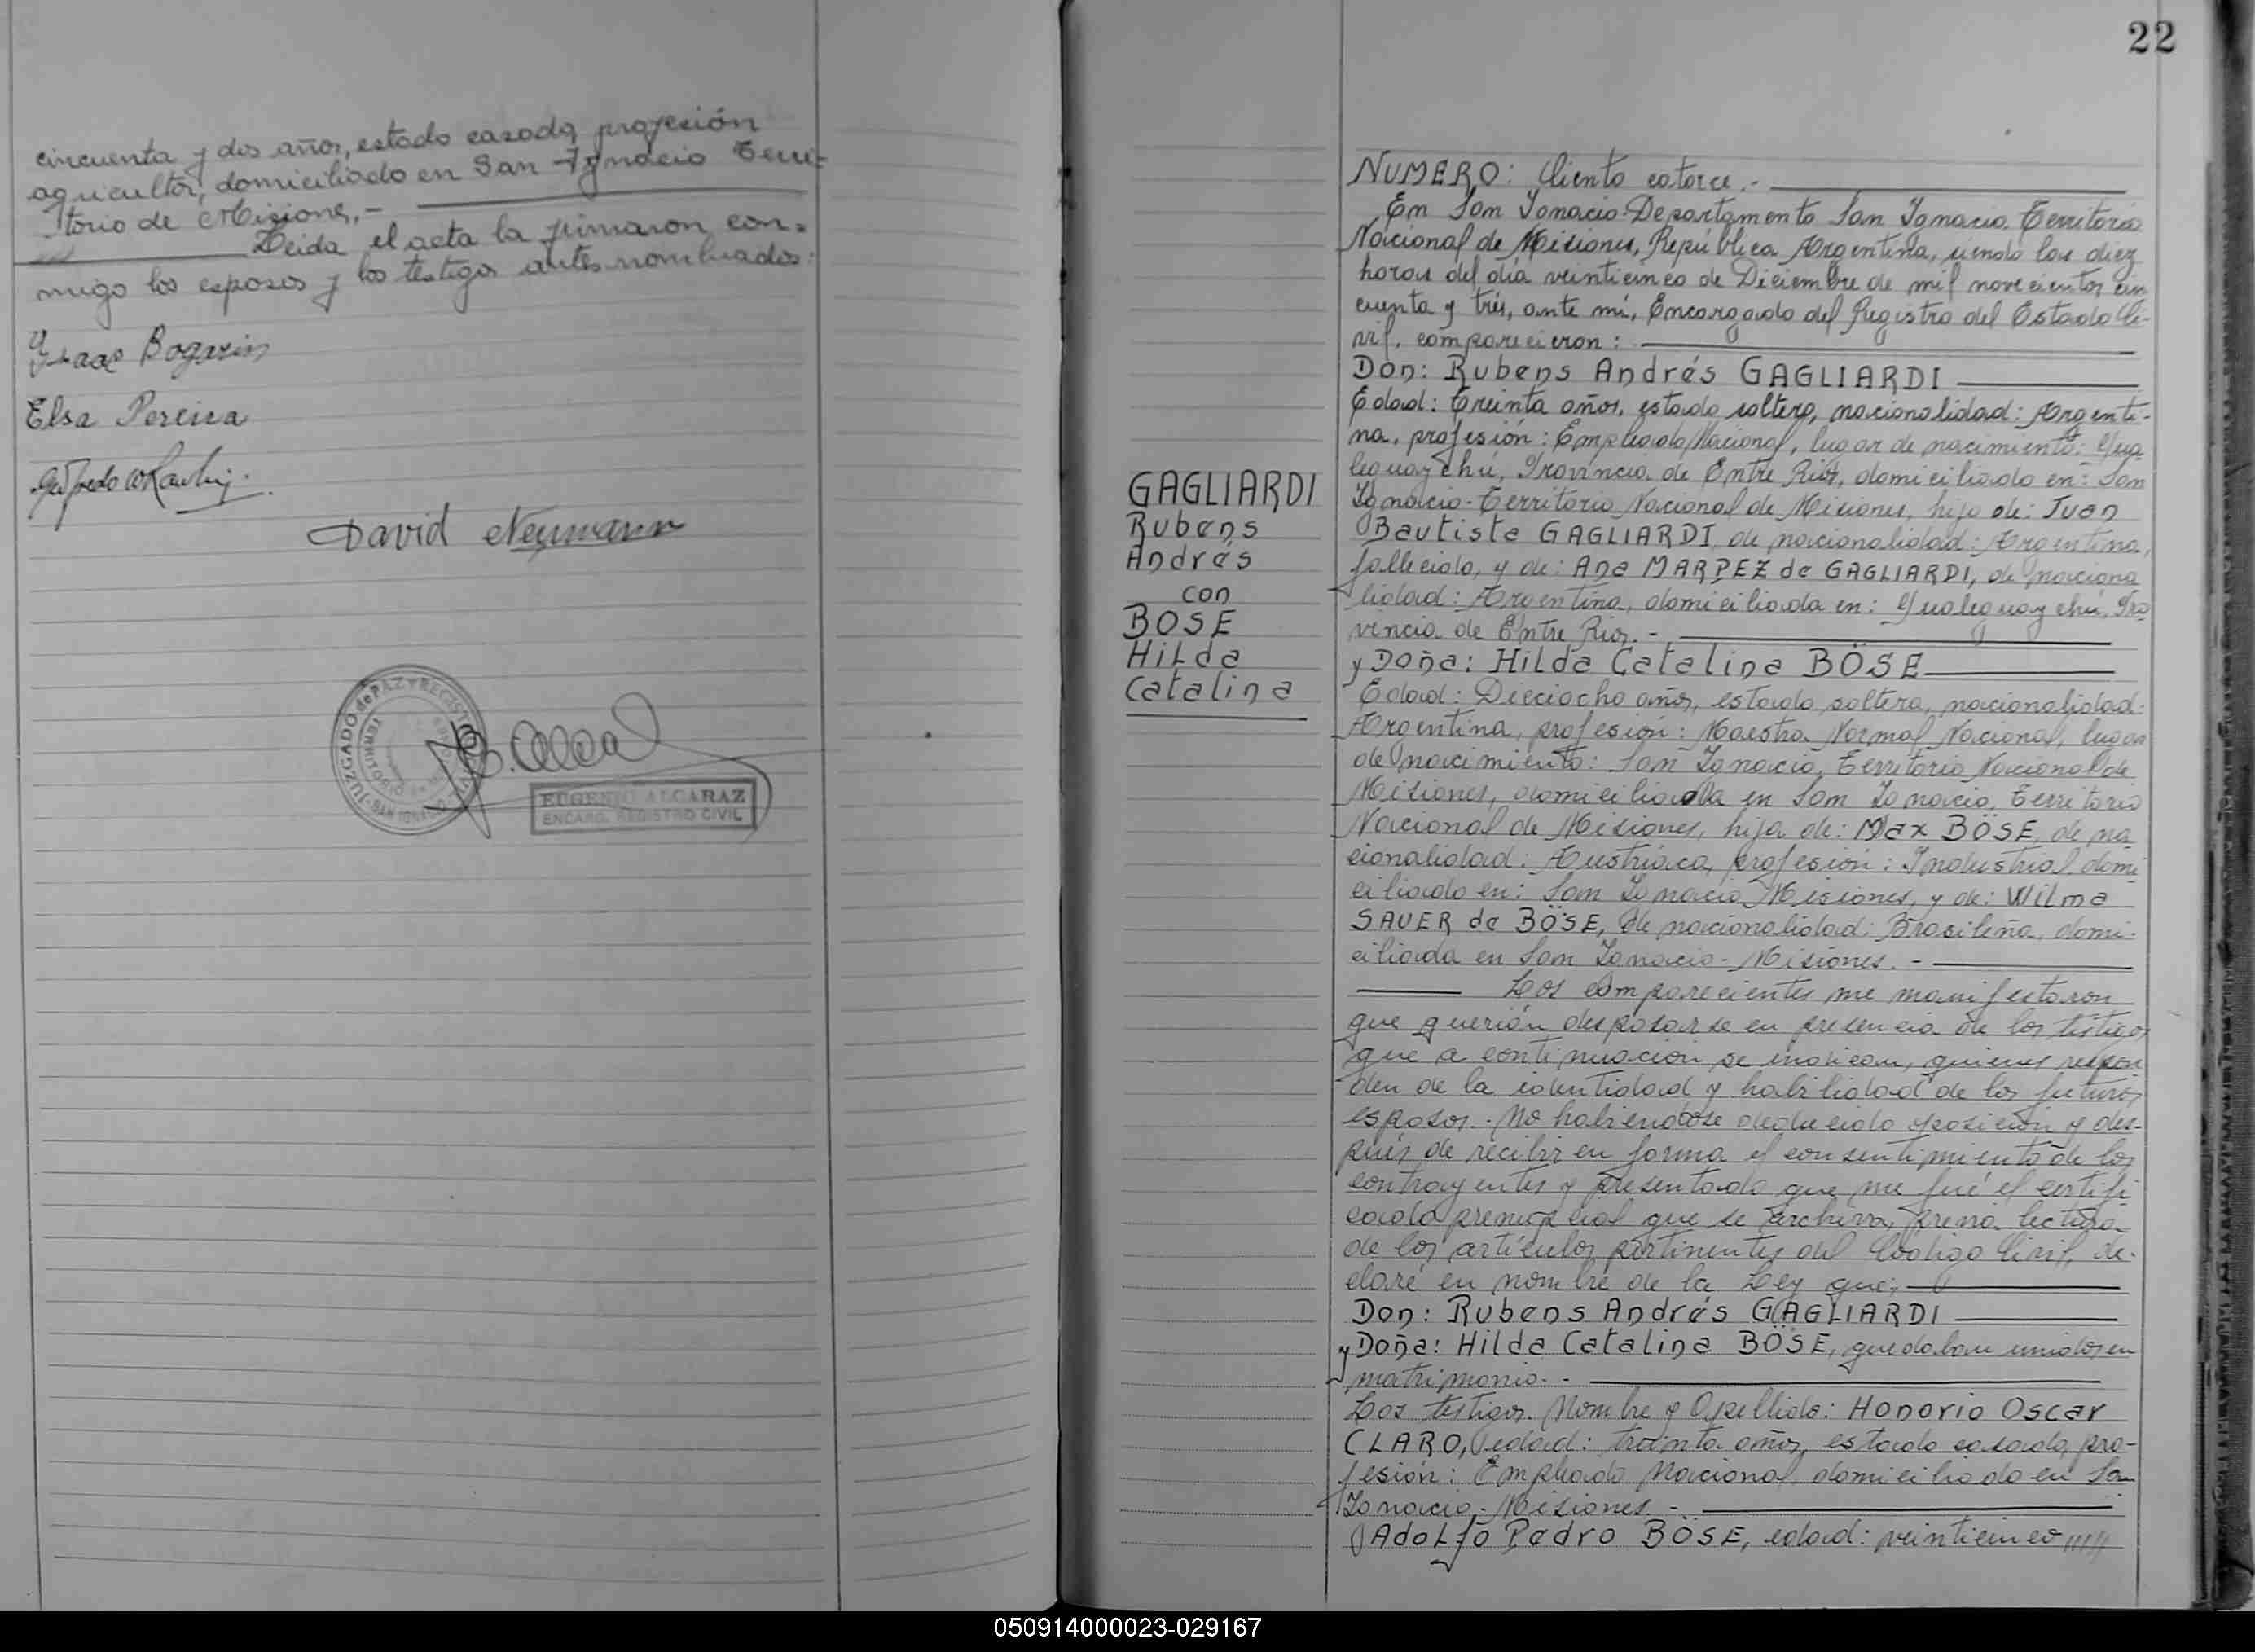 cincuenta y dos años, estado casado, profesión
agricultor, domiciliado en San Ignacio Terri=
torio de Misiones.-
Leida el acta la firmaron con=
migo los esposos y los testigos antes nombrados:
Bogarin
Elsa Pereira
David Neumann
JUZGADO de PAZ Y REGISTRO CIVIL
SAN IGNACIO
EUGENIO ALCARAZ
ENCARG. REGISTRO CIVIL
22
GAGLIARDI
Rubens
Andrés
con
BOSE
Hilda
Catalina
NUMERO: Ciento catorce.-
En San Ignacio-Departamento San Ignacio. Territorio
Nacional de Misiones, República Argentina, siendo las diez
horas del día veinticinco de Diciembre de mil novecientos cin
cuenta y trés, ante mí, Encargado del Registro del Estado Ci-
vil, comparecieron:
Don: Rubens Andrés GAGLIARDI
Edad: Treinta años, estado soltero, nacionalidad: Argenti-
na, profesión: Empleado Nacional, lugar de nacimiento: Gua
leguaychú, Provincia de Entre Rios, domiciliado en: San
Ignacio-Territorio Nacional de Misiones, hijo de: Juan
Bautista GAGLIARDI, de nacionalidad: Argentina,
fallecido, y de: Ana MARPEZ de GAGLIARDI, de naciona
lidad: Argentina, domiciliada en: Gualeguaychú, Pro
vincia de Entre Rios.-
y Doña: Hilda Catalina BÖSE
Edad: Dieciocho años, estado soltera, nacionalidad:
Argentina, profesión: Maestra Normal Nacional, lugar
de nacimiento: San Ignacio, Territorio Nacional de
Misiones, domiciliada en San Ignacio, Territorio
Nacional de Misiones, hija de: Max BÖSE, de na
cionalidad: Austríaca, profesión: Industrial, domi
ciliado en: San Ignacio Misiones, y de: Wilma
SAUER de BÖSE, de nacionalidad: Brasileña, domi-
ciliada en San Ignacio - Misiones.-
Los comparecientes me manifestaron
que querían desposarse en presencia de los testigos
que a continuación se indican, quienes respon
den de la identidad y habilidad de los futuros
esposos.- No habiendose deducido oposición y des-
pués de recibir en forma el consentimiento de los
contrayentes y presentado que me fué el certifi
cado prenupcial que se archiva, previa lectura
de los artículos pertinentes del Código Civil, de-
claré en nombre de la Ley que;
Don: Rubens Andrés GAGLIARDI
y Doña: Hilda Catalina BÖSE, quedaban unidos en
matrimonio.-
Los testigos. Nombre y Apellido: Honorio Oscar
CLARO, edad: treinta años, estado casado, pro-
fesión: Empleado Nacional, domiciliado en San
Ignacio-Misiones.-
Adolfo Pedro BÖSE, edad: veinticinco /////
050914000023-029167